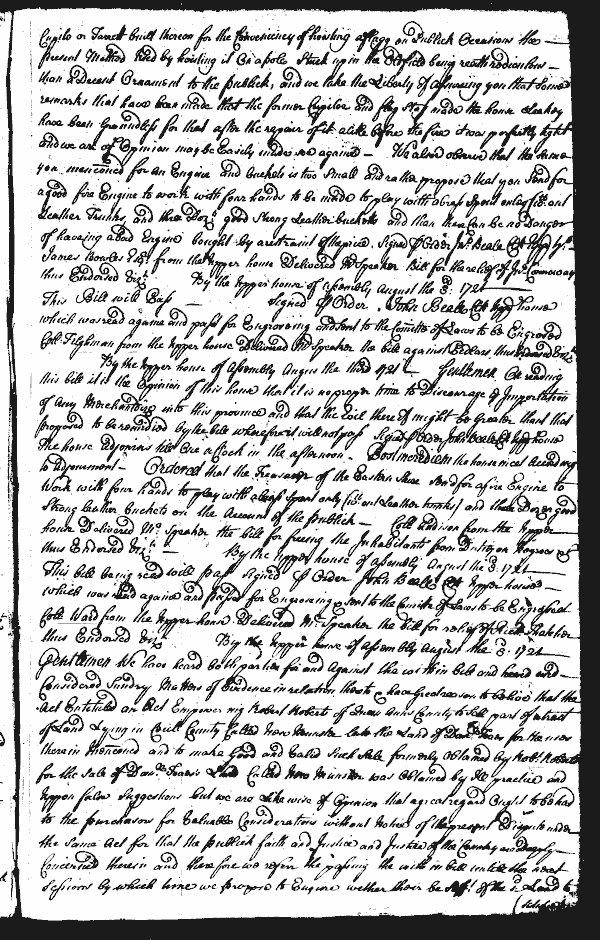 Cupilo or Turrett built thereon for the Conveniency of hoisting a flagg on Publick Occasions the
present Method used by hoisting it on a pole Stuck up in the being reather rediculous
than a Decent Ornament to the publick, and we take the Liberty of assuring you that some
remarks that have been made that the former Cupilo and flag staf made the house Leakey
have been Groundless for that after the repair of it alike before the fire it was perfectly tight
and we are of Opinion may be Easily made so againe — We also observe that the same
you mencōned for an Engine and buckets is two Small and rather propose that you Send for
a good fire Engine to work with four hands to be made to play with a brass Spout only without
Leather Trunks, and three Dozn good Strong Leather buckets and then there can be no Danger
of haveing a bad Engine bought by a restraint of the price. Signed p Order Jno. Beale Clk
James Bowles Esq. from the upper house Delivered Mr Speaker Bill for the relief of Jno.
thus Endorsed Vizt. By the upper house of assembly August the 3d. 1721
This Bill will Pass — Signed p Order. John Beale Clk upp house
which was read againe and past for Engrossing and sent to the Comitte of Laws to be Engrossed
Coll Tilghman from the upper house Delivered Mr Speaker the bill against Pedlars thus Endorsed Vizt
By the upper house of Assembly Augus the third 1721 Gentlemen On reading
this bill it is the Opinion of this house that it is no proper time to Discourage ye Importation
of any Merchandizes into this province and that the Evil thereof might be Greater than that
proposed to be remedied by the bill wherefore it will not pass Signed p Order John Beale Clk upp house
The house Adjourns till One a Clock in the afternoon — Post meridiem the house met According
to Adjournment — Ordered that the Treasurer of the Eastern Shore Send for a fire Engine to
Work with four hands to play with a brass Spout only (without Leather trunks) and three Dozen good
Strong Leather Buckets on the Account of the publick — Coll Addison from the upper
house Delivered Mr. Speaker the bill for freeing the Inhabitants from Duty on Negroes &c
thus Endorsed Vizt. — By the upper house of assembly August the 3d. 1721
This bill being read will pass Signed p Order John Beale Clk upper house —
which was read againe and passed for Engrossing & sent to the Comitte of Laws to be Engrossed
Coll Ward from the upper house Delivered Mr Speaker the bill for relief of
thus Endorsed Vizt By the upper house of Assembly August the 3d. 1721
Gentlemen We have heard both parties for and Against the within bill and heard and
Considered Sundry Matters of Evidence in relation thereto & have Great reason to believe that the
Act Entituled an Act Empowering Robert Robert of Queen Anns County to Sell part of a tract
of Land Lying in Cecill County Called New Munster late the Land of for the uses
therein Mencōned and to make Good and Valid Such Sale formerly Obtained by Robt. Roberts
for the Sale of Land Called New Munster was Obtained by Ill practice and
uppon false Suggestions but we are Likewise of Opinion that a great regard Ought to be had
to the purchasors for Valuable Considerations without Notice of the present Dispute under
the Same Act for that the publick faith and Justice and Justice of the Country are Deeply
Concerned therein and therefore we refer the passing the within bill until the next
Sessions by which time we propose to Enquire wether their be of the sd Land to